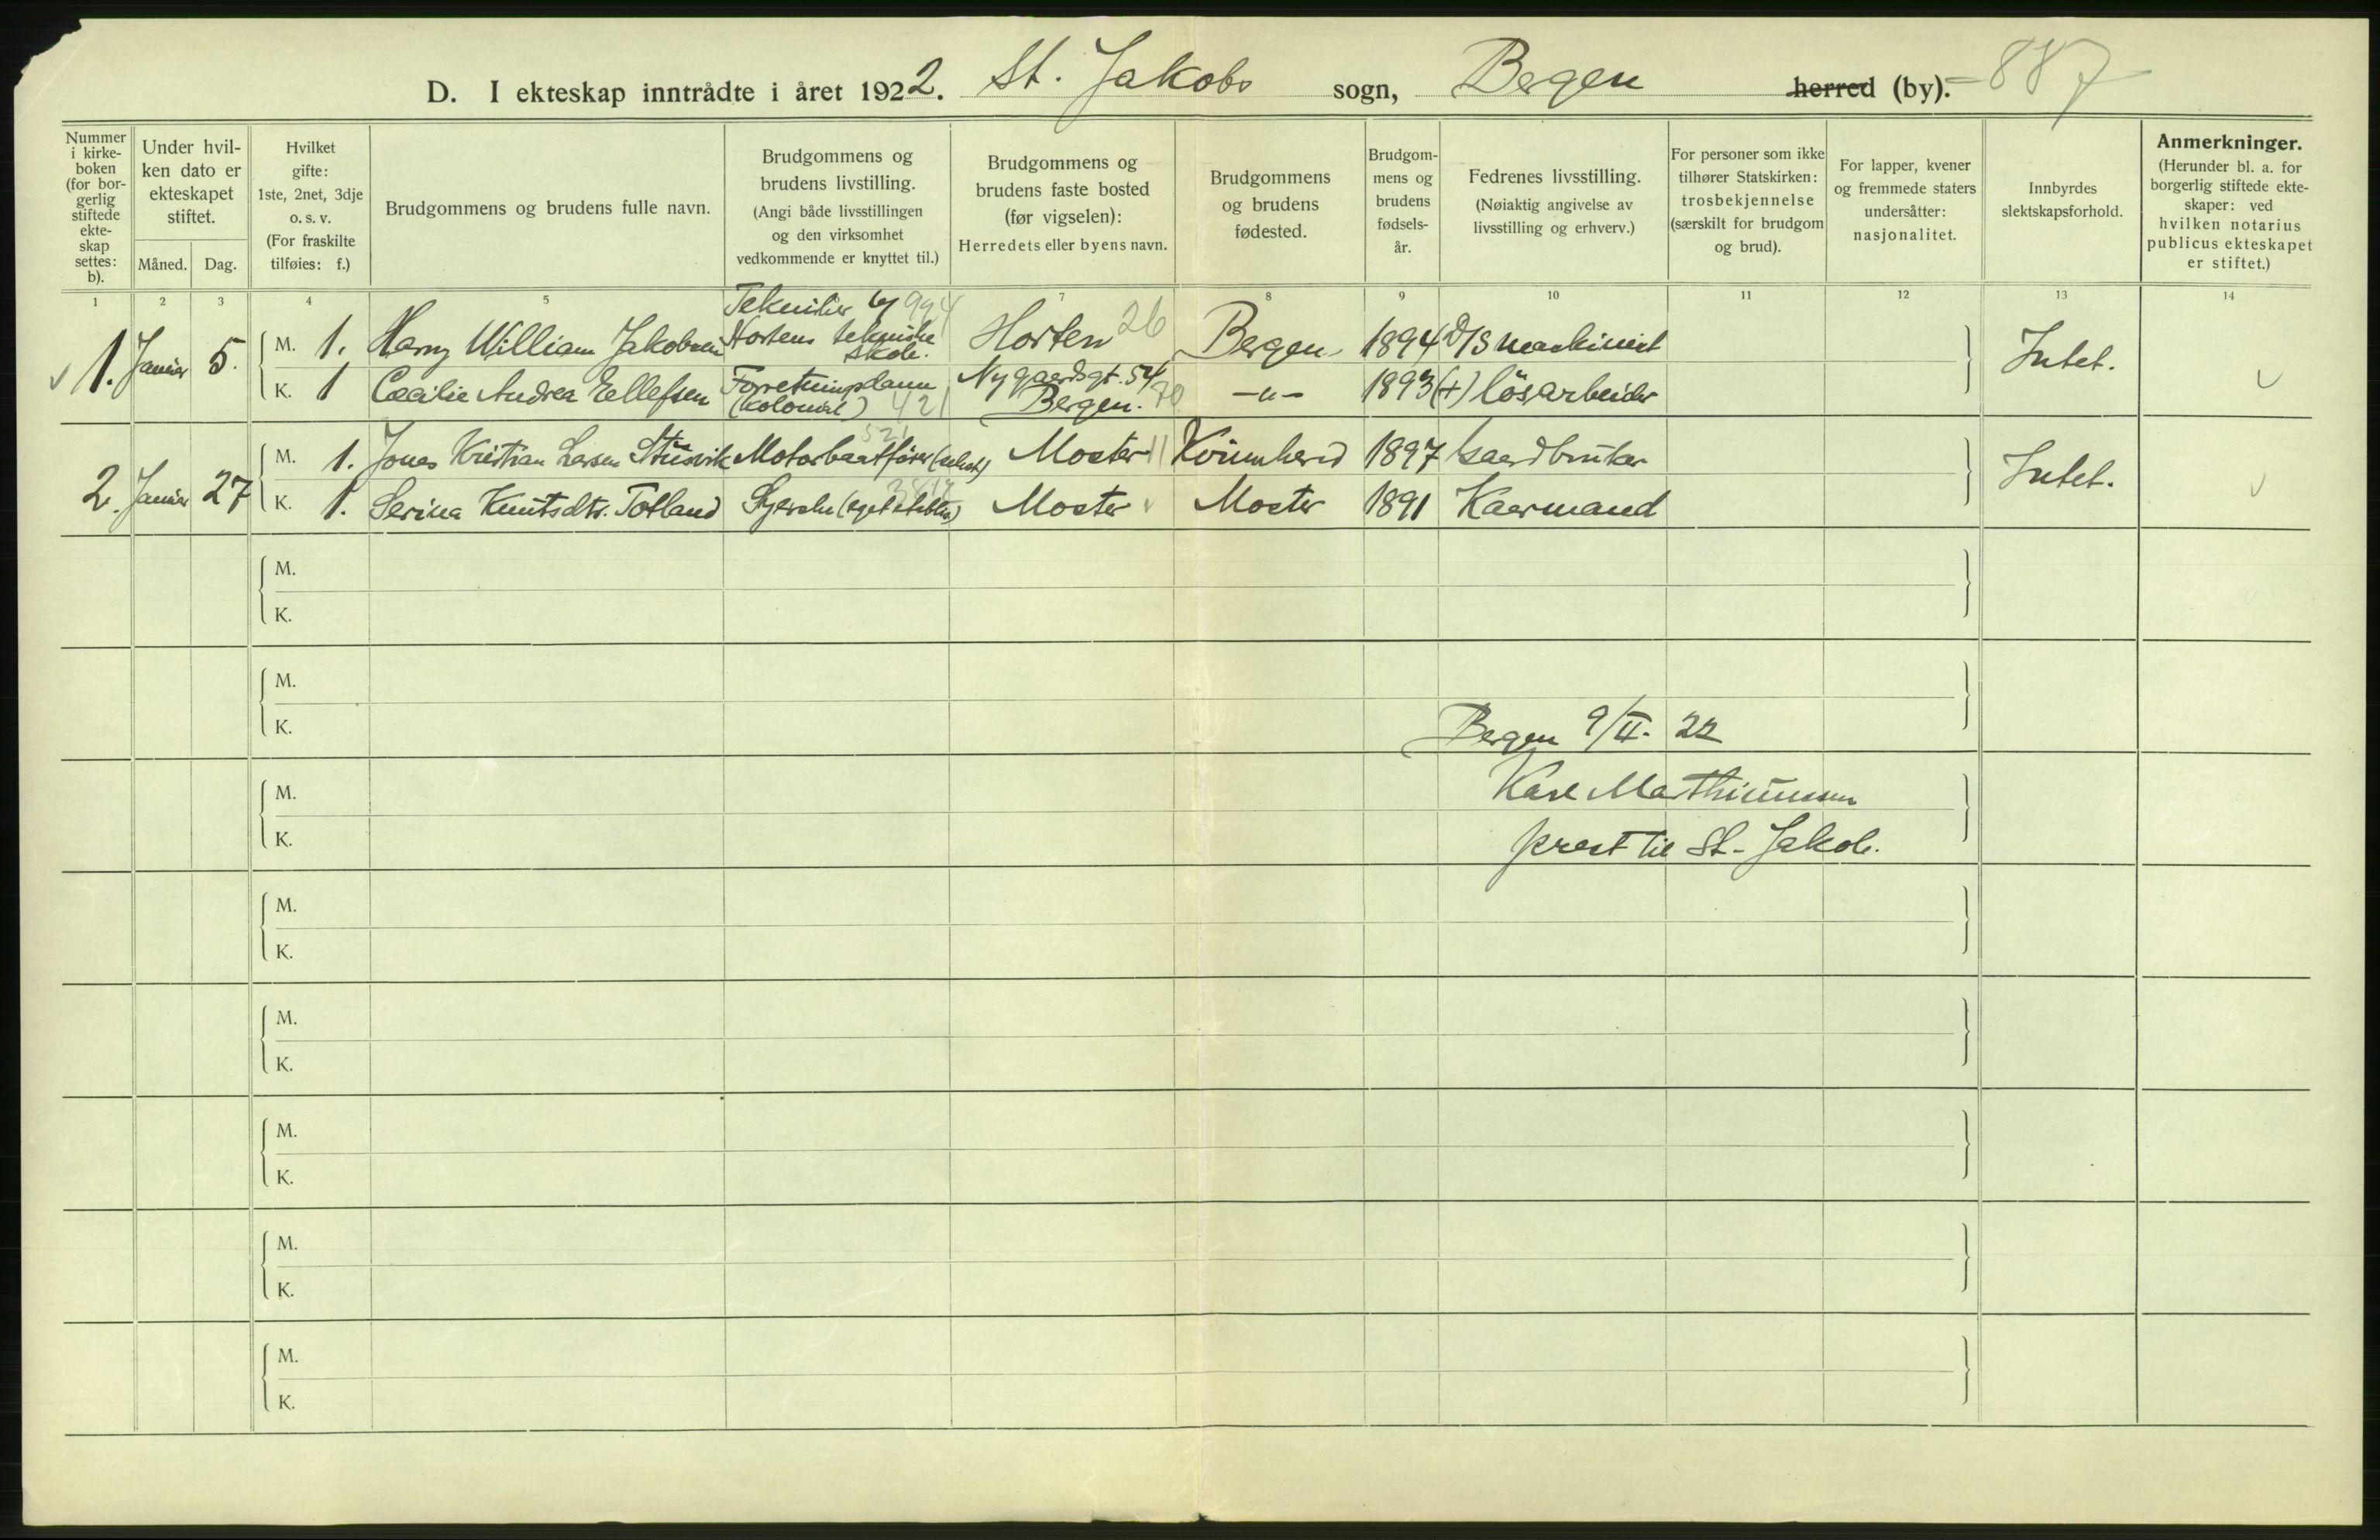 D. I ekteskap inntrådte i året 1922. St. Jakobs sogn, Bergen herred (by). 887
Nummer i kirkeboken (for borgerlig stiftede ekteskap settes: b).
Under hvilken dato er ekteskapet stiftet.
Måned. Dag.
Hvilket gifte: 1ste, 2net, 3dje o. s. v. (For fraskilte tilføies: f.)
Brudgommens og brudens fulle navn.
Brudgommens og brudens livstilling. (Angi både livsstillingen og den virksomhet vedkommende er knyttet til.)
Brudgommens og brudens faste bosted (før vigselen): Herredets eller byens navn.
Brudgommens og brudens fødested.
Brudgommens og brudens fødselsår.
Fedrenes livsstilling. (Nøiaktig angivelse av livsstilling og erhverv.)
For personer som ikke tilhører Statskirken: trosbekjennelse (særskilt for brudgom og brud).
For lapper, kvener og fremmede staters undersåtter: nasjonalitet.
Innbyrdes slektskapsforhold.
Anmerkninger. (Herunder bl. a. for borgerlig stiftede ekteskaper: ved hvilken notarius publicus ekteskapet er stiftet.)
1 2 3 4 5 7 8 9 10 11 12 13 14
1. Januar 5. M. 1. Harry William Jakobsen Tekniker v/ Hortens tekniske skole. 994 Horten 26 Bergen 1894 D/S maskinist Intet.
K. 1 Cecilie Andrea Ellefsen Forretningsdame (kolonial) 421 Nygaardsgt. 54 Bergen. 70 -"- 1893 (+) løsarbeider
2. Januar 27 M. 1. Jonas Kristian Larsen Stusvik Motorbaatfører 521 Moster Kvinnherid 1897 Gaardbruker Intet.
K. 1. Serina Knutsdtr. Totland Syerske (eget etabl.) Moster Moster 1891 Kaarmand
M.
K.
M.
K.
Bergen 9/II. 22
M.
Karl Marthinussen
K.
prest til St. Jakob.
M.
K.
M.
K.
M.
K.
M.
K.
M.
K.